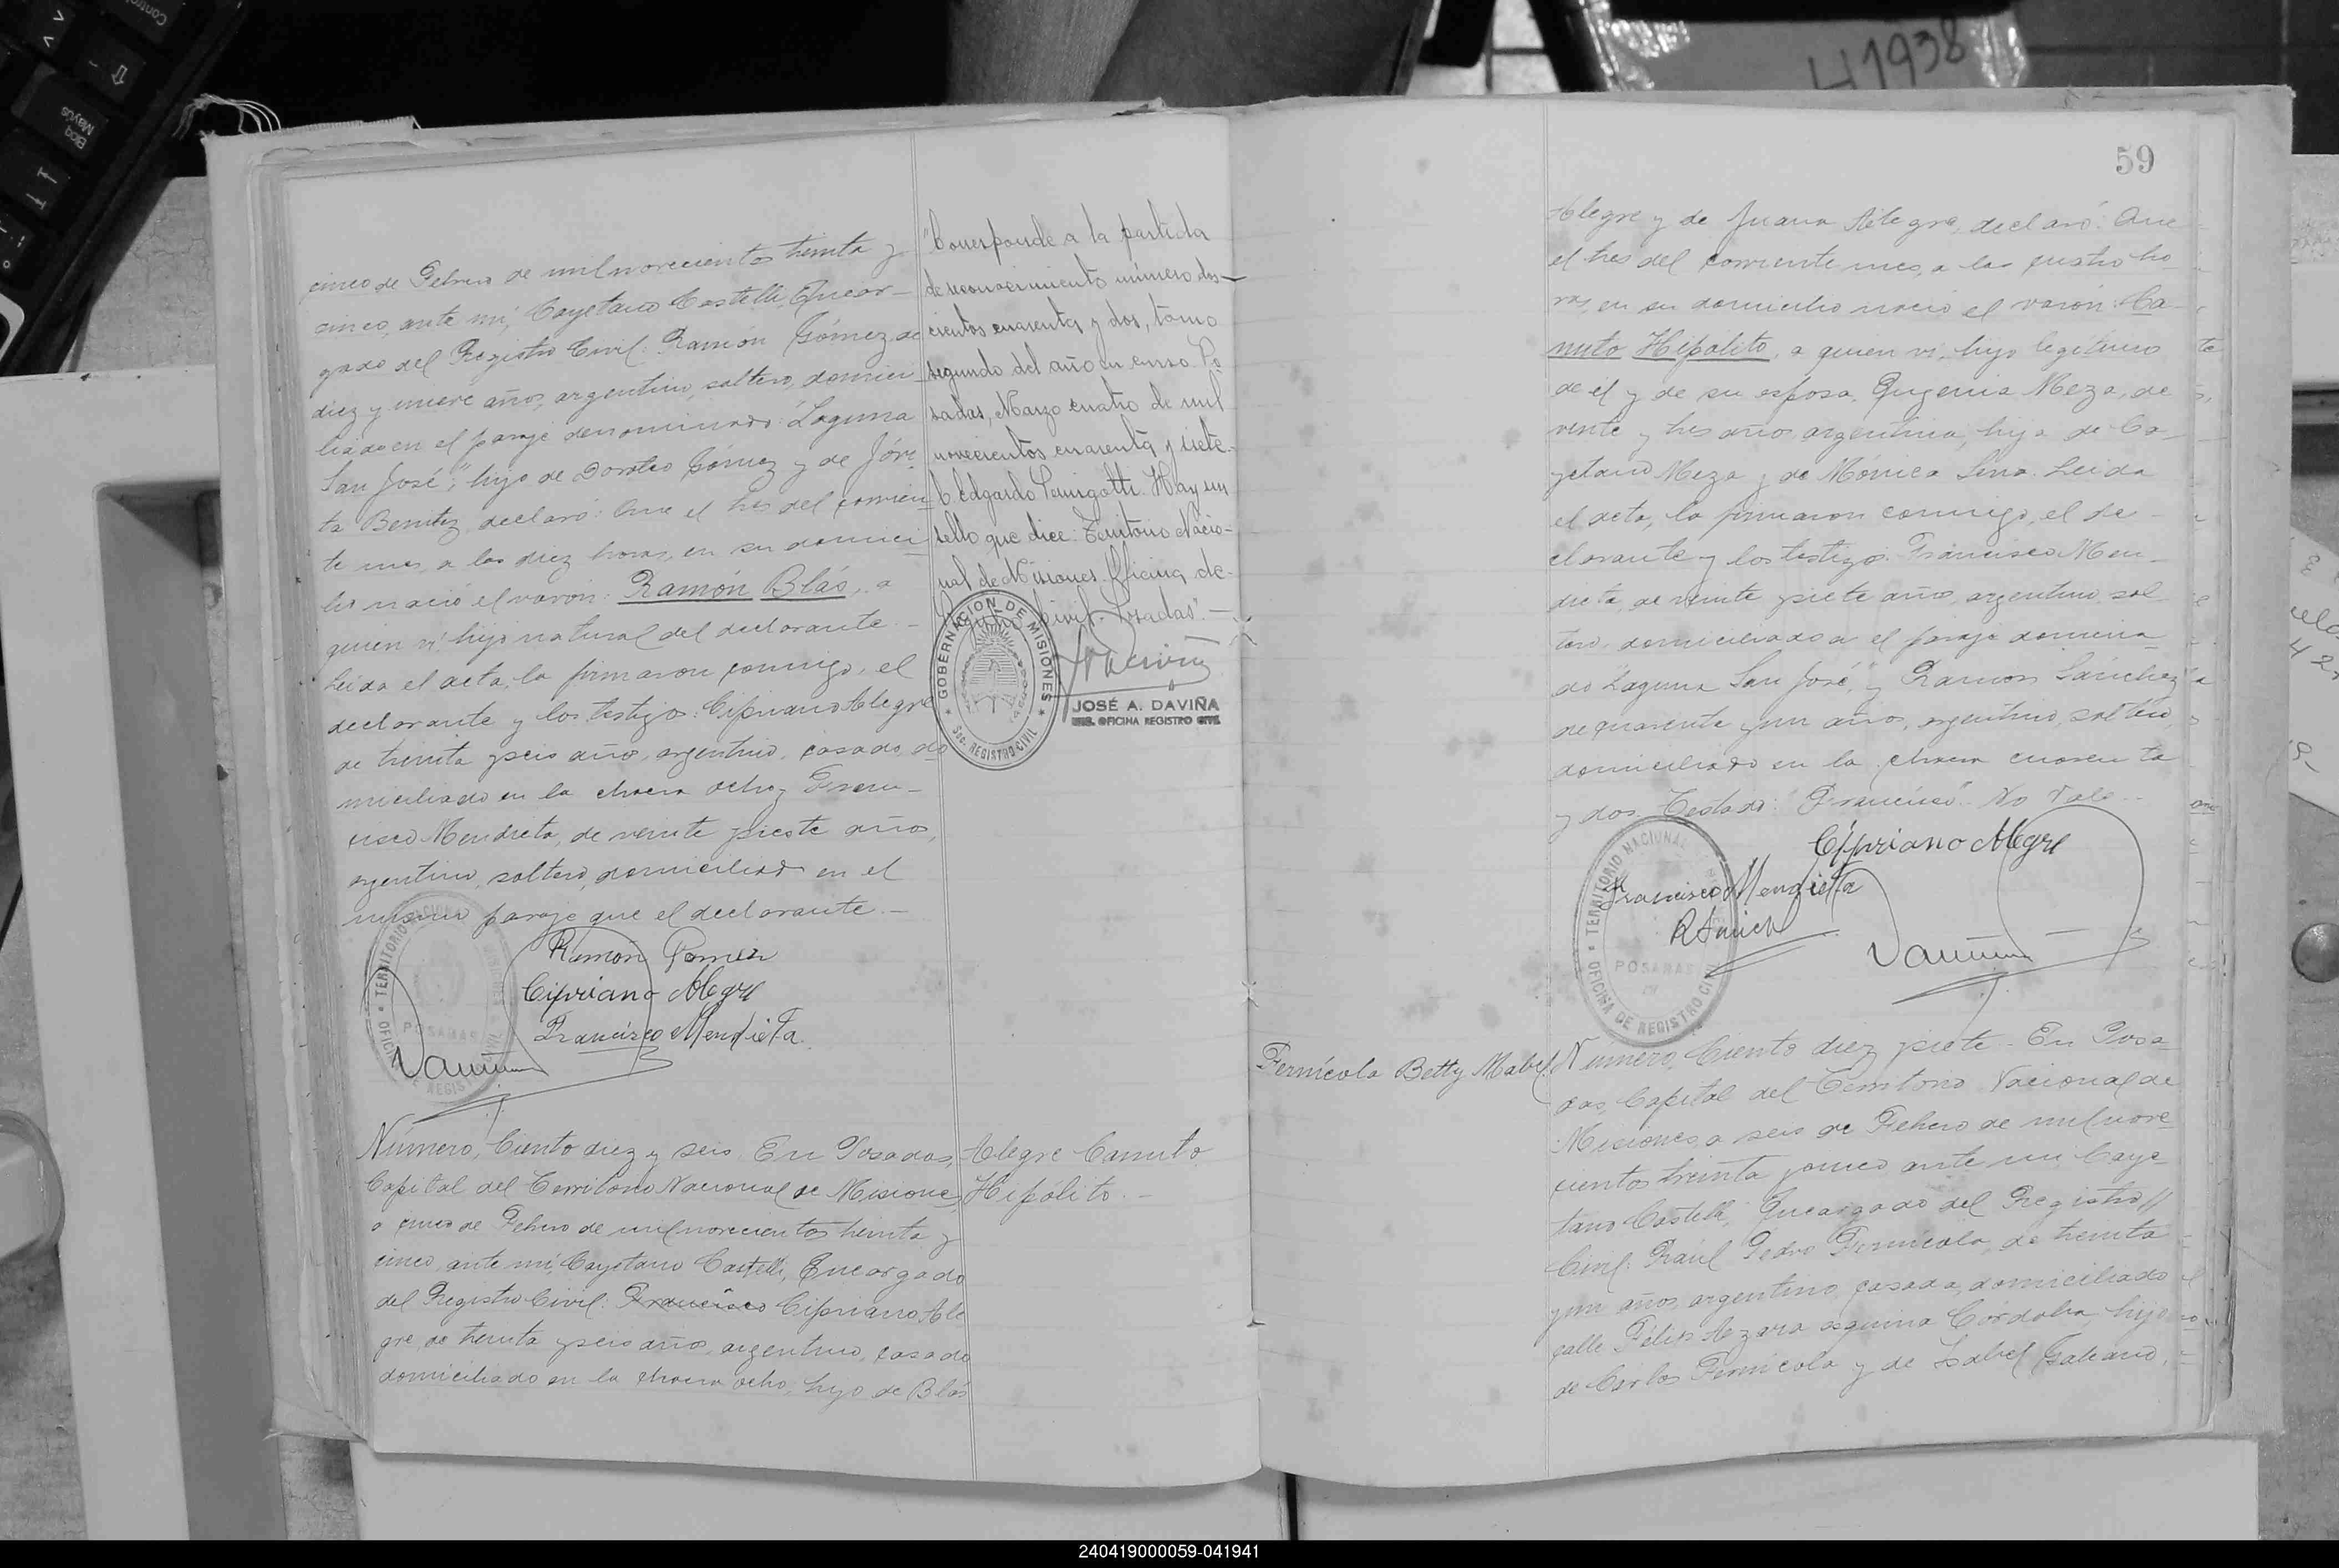 H1938
59
cinco de Febrero de mil novecientos treinta y
cinco, ante mí, Cayetano Castelli, Encar-
gado del Registro Civil: Ramón Gómez de
diez y nueve años, argentino, soltero, domici
liado en el paraje denominado "Laguna
San José", hijo de Doroteo Gómez y de
ta Benitez, declaró: Que el tres del corrien
te mes, a las diez horas, en su domici
lio nació el varón: Ramón Blás, a
quien ví hijo natural del declarante.-
Leida el acta, la firmaron conmigo, el
declarante y los testigos: Cipriano Alegre
de treinta y seis años, argentino, casado, do
miciliado en la chacra ocho y Fran-
cisco Mendieta, de veinte y siete años,
argentino, soltero, domiciliado en el
mismo paraje que el declarante.-
Ramón Gomez
Cipriano Alegre
Francisco Mendieta
"Corresponde a la partida
de reconocimiento número dos-
cientos cuarenta y dos, tomo
segundo del año en curso. Po
sadas, Marzo cuatro de mil
novecientos cuarenta y siete.-
Edgardo Hay un
sello que dice: Territorio Nacio-
nal de Misiones. Oficina de
Civil. Posadas".-
GOBERNACION DE MISIONES
Sec. REGISTRO CIVIL
JOSÉ A. DAVIÑA
OFICINA REGISTRO CIVIL
Número, Ciento diez y seis. En Posadas,
Capital del Territorio Nacional de Misiones
a cinco de Febrero de mil novecientos treinta y
cinco, ante mí, Cayetano Castelli, Encargado
del Registro Civil: Francisco Cipriano Ale
gre, de treinta y seis años, argentino, casado
domiciliado en la chacra ocho, hijo de Blás
Alegre Canuto
Hipólito.-
Alegre y de Juana Alegre, declaró: Que
el tres del corriente mes, a las cuatro ho
ras, en su domicilio nació el varón: Ca-
nuto Hipólito, a quien ví, hijo legitimo
de él y de su esposa, Eugenia Meza, de
veinte y tres años, argentina, hija de Ca-
yetano Meza y de Mónica Leida
el acta, la firmaron conmigo, el de-
clarante y los testigos: Francisco Men-
dieta, de veinte y siete años, argentino, sol
tero, domiciliado en el paraje denomina-
do "Laguna San José", y Ramon Sánchez
de cuarenta y un años, argentino, soltero,
domiciliado en la chacra cuarenta
y dos. Testado: "Francisco". No Vale.-
Cipriano Alegre
Francisco Mendieta
TERRITORIO NACIONAL
POSADAS
OFICINA DE REGISTRO CIVIL
Fernícola Betty Mabel.
Número, Ciento diez y siete.- En Posa-
das, Capital del Territorio Nacional de
Misiones, a seis de Febrero de mil nove
cientos treinta y cinco ante mí Caye-
tano Castelli, Encargado del Registro
Civil: Raúl Pedro Fernícola, de treinta
y un años, argentino, casado, domiciliado
calle Félix Azara esquina Cordoba, hijo
de Carlos Fernícola y de Isabel Galeano,
240419000059-041941